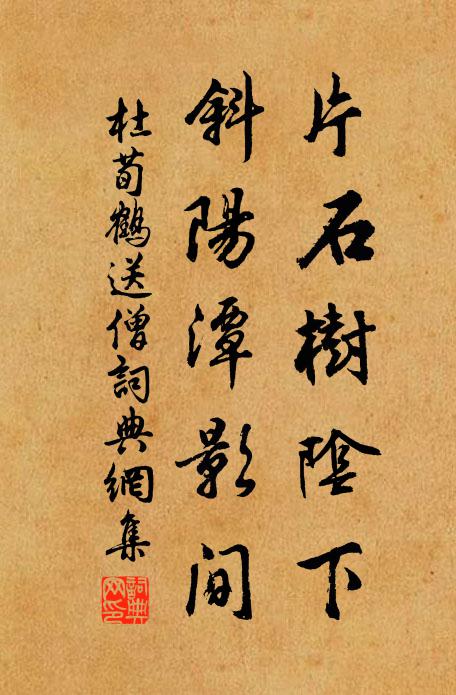 片石樹陰下
斜陽潭影间
杜荀鶴送僧詞典網集
詞典网印